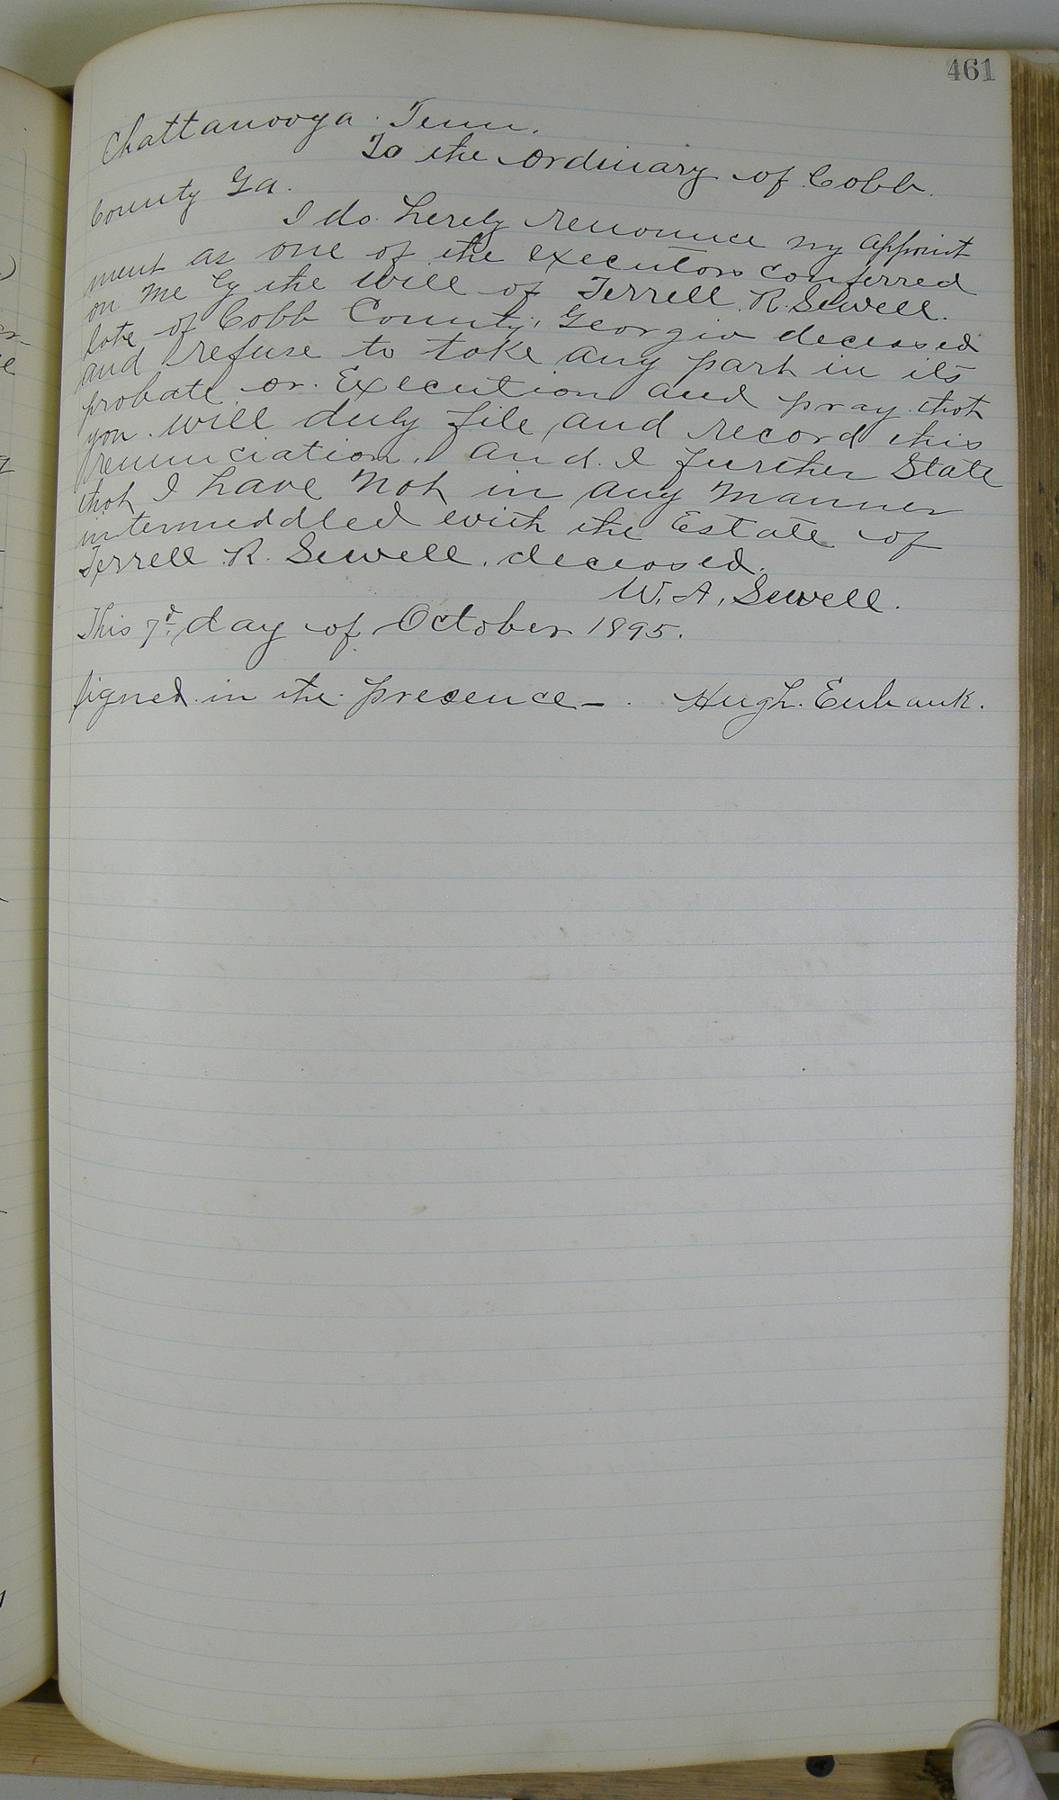 461
Chattanooga. Tenn.
To the Ordinary of Cobb.
County Ga.
I do hereby renounce my appoint
ment as one of the executors conferred
on me by the will of Terrell R. Sewell.
late of Cobb County, Georgia deceased
and refuse to take any part in its
probate or. Execution and pray that
you will duly file and record this
renunciation. And I further State
that I have not in any manner
intermeddled with the Estate of
Terrell R. Sewell, deceased.
W. A. Sewell.
This 7th day of October 1895.
Signed in the presence - . Hugh. Eubank.